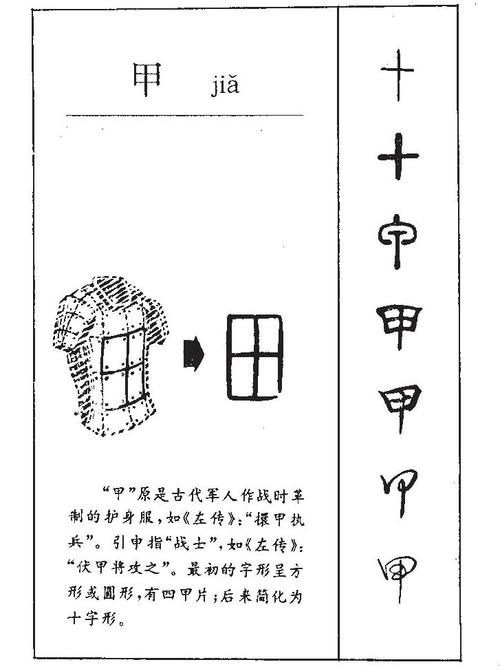 甲 jiǎ
“甲”原是古代军人作战时革
制的护身服，如《左传》：“擐甲执
兵”。引申指“战士”，如《左传》：
“伏甲将攻之”。最初的字形呈方
形或圆形，有四甲片；后来简化为
十字形。
十
十
甲
甲
甲
甲